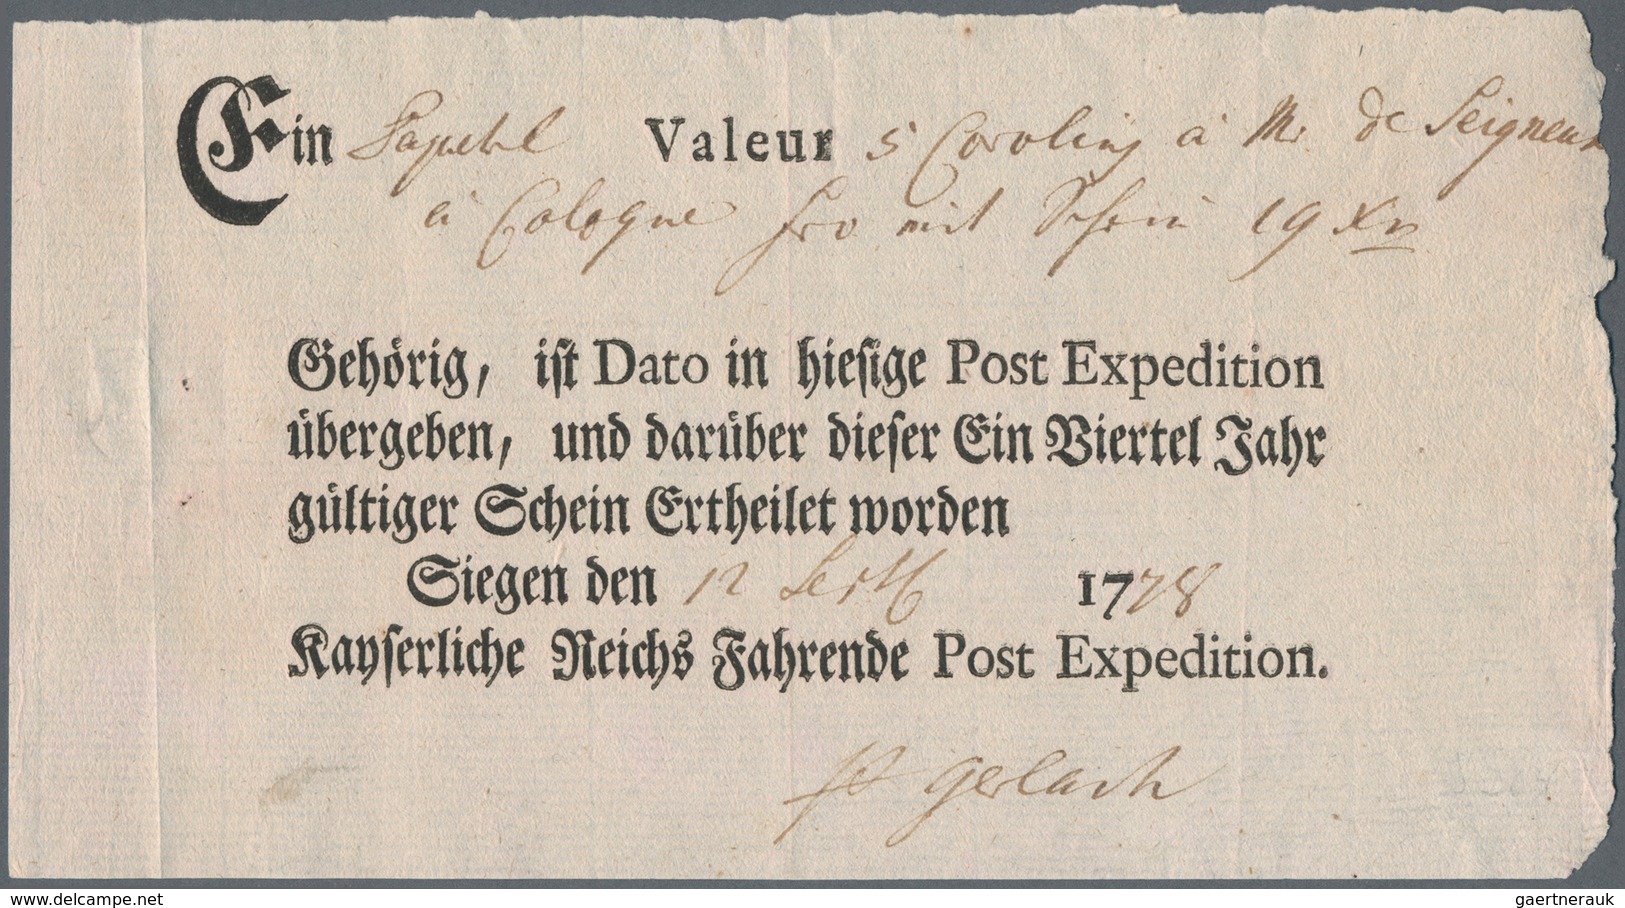 Ein Paquetel Valeur 5 Carolins à Mr. de Seigneur
à Cologne fco mit Schein 19 Xr
Gehörig, ist Dato in hiesige Post Expedition
übergeben, und darüber dieser Ein Viertel Jahr
gültiger Schein Ertheilet worden
Siegen den 12 1778
Kayserliche Reichs Fahrende Post Expedition.
Gerlach
delcampe.net
gaertnerauk